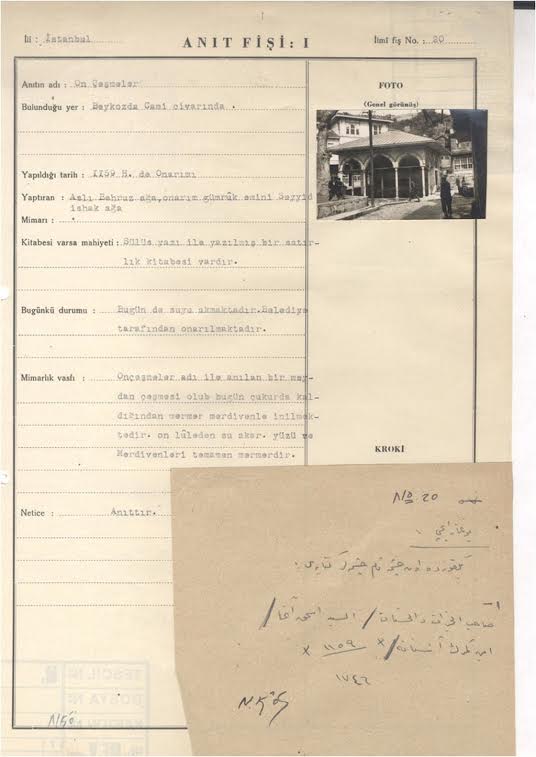 İli : İstanbul
ANIT FİŞİ: I
İlmî fiş No. : 20
Anıtın adı : On Çeşmeler
Bulunduğu yer : Beykozda Cami civarında .
Yapıldığı tarih : II59 H. de Onarımı
Yaptıran : Aslı Behruz ağa,onarım gümrük emini Seyyid
ishak ağa
Mimarı :
Kitabesi varsa mahiyeti : Sülüs yazı ile yazılmış bir satır-
lık kitabesi vardır.
Bugünkü durumu : Bugün de suyu akmaktadır.Belediye
tarafından onarılmaktadır.
Mimarlık vasfı : Onçeşmeler adı ile anılan bir mey-
dan çeşmesi olub bugün çukurda kal-
dığından mermer merdivenle inilmek-
tedir. on lüleden su akar. yüzü ve
Merdivenleri temamen mermerdir.
Netice : Anıttır.
FOTO
(Genel görünüş)
KROKİ
No 20
صاحب الخيرات والحسنات / السيد اسحق آغا /
امين كمرك آستانه / * ١١٥٩ *
١٧٤٦
TESCİL Nr.
DOSYA Nr.